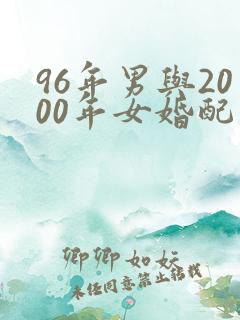 96年男與20
00年女婚配
卿卿如妘
未任同意禁止轉載